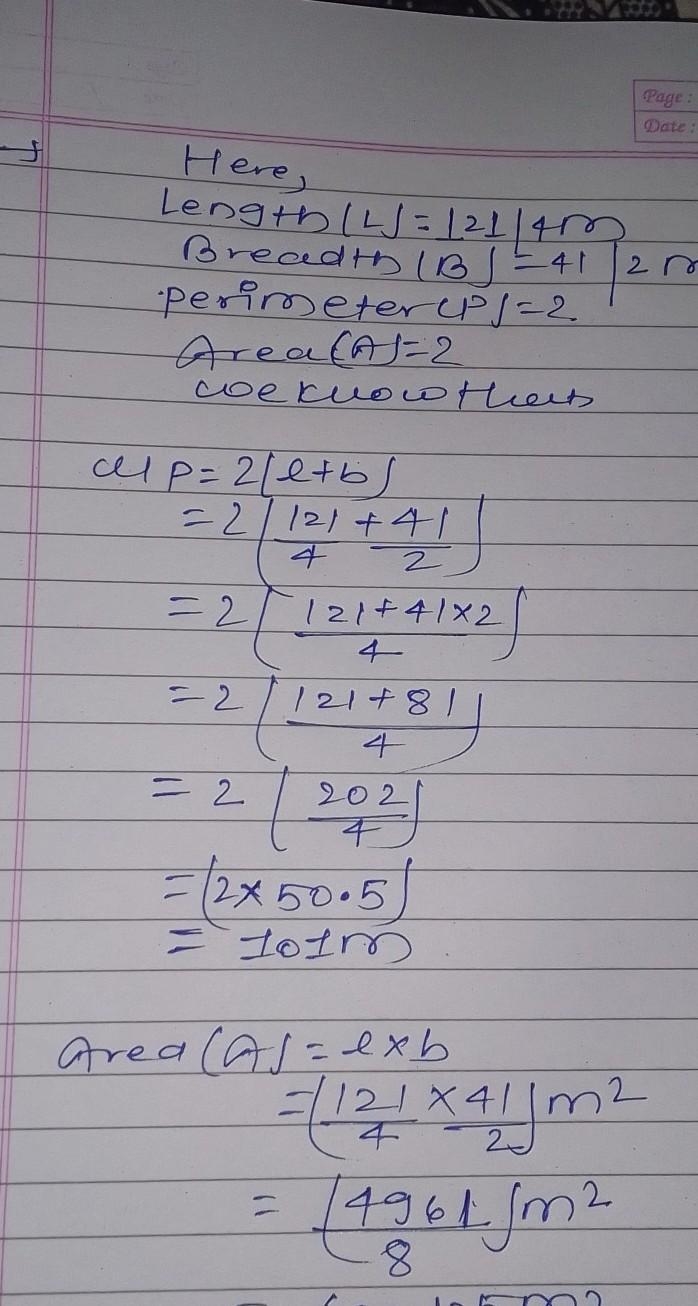 Page :
Date :
Here,
Length (L) = 121/4 m
Breadth (B) = 41/2 m
perimeter (P) = 2
Area (A) = 2
we know that
P = 2(l+b)
= 2(121/4 + 41/2)
= 2((121+41×2)/4)
= 2((121+81)/4)
= 2(202/4)
= (2×50.5)
= 101m
Area (A) = l×b
= (121/4 × 41/2) m2
= (4961/8) m2